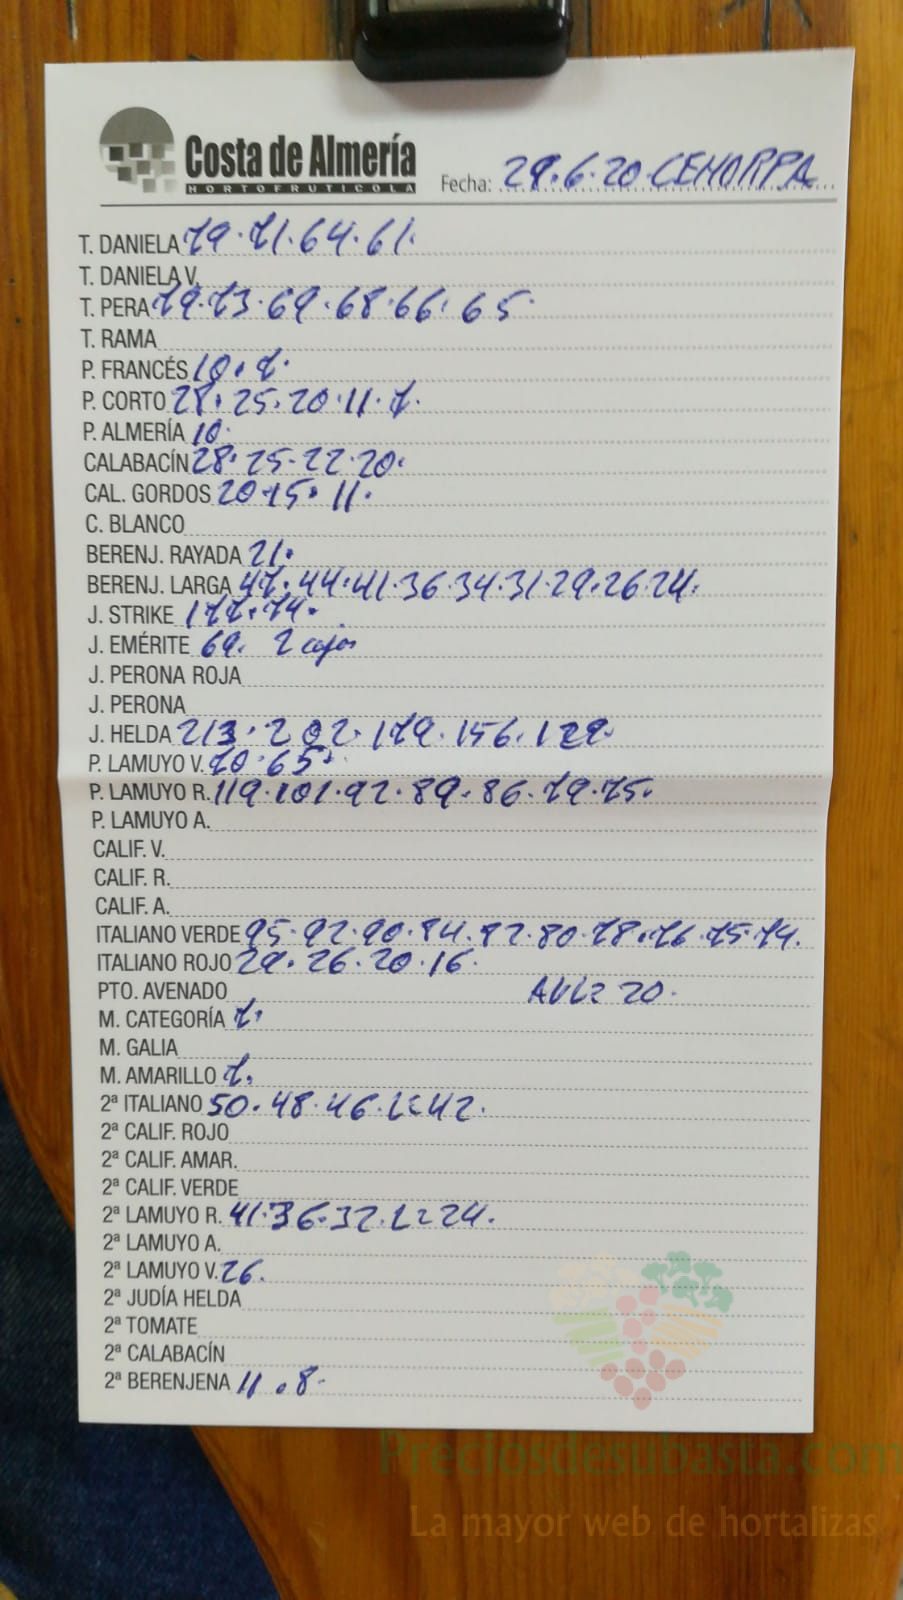 Costa de Almería
HORTOFRUTICOLA
Fecha: 29.6.20 CEHORPA
T. DANIELA 79.71.64.61.
T. DANIELA V.
T. PERA 79.73.69.68.66.65.
T. RAMA
P. FRANCÉS 10.7.
P. CORTO 28.25.20.11.7.
P. ALMERÍA 10.
CALABACÍN 28.25.22.20.
CAL. GORDOS 20.15.11.
C. BLANCO
BERENJ. RAYADA 21.
BERENJ. LARGA 47.44.41.36.34.31.29.26.24.
J. STRIKE 177.174.
J. EMÉRITE 69. 2 cajas
J. PERONA ROJA
J. PERONA
J. HELDA 213.202.179.156.129.
P. LAMUYO V. 70.65.
P. LAMUYO R. 119.101.92.89.86.79.75.
P. LAMUYO A.
CALIF. V.
CALIF. R.
CALIF. A.
ITALIANO VERDE 95.92.90.84.82.80.78.76.75.74.
ITALIANO ROJO 29.26.20.16.
PTO. AVENADO 20.
M. CATEGORÍA 7.
M. GALIA
M. AMARILLO 7.
2ª ITALIANO 50.48.46. 42.
2ª CALIF. ROJO
2ª CALIF. AMAR.
2ª CALIF. VERDE
2ª LAMUYO R. 41.36.32. 24.
2ª LAMUYO A.
2ª LAMUYO V. 26.
2ª JUDÍA HELDA
2ª TOMATE
2ª CALABACÍN
2ª BERENJENA 11.8.
Preciosdesubasta.com
La mayor web de hortalizas